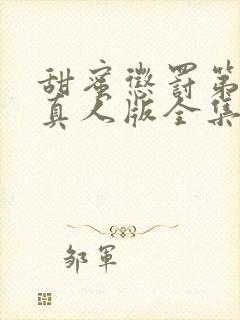 甜蜜懲罰第
真人版全集
邹軍